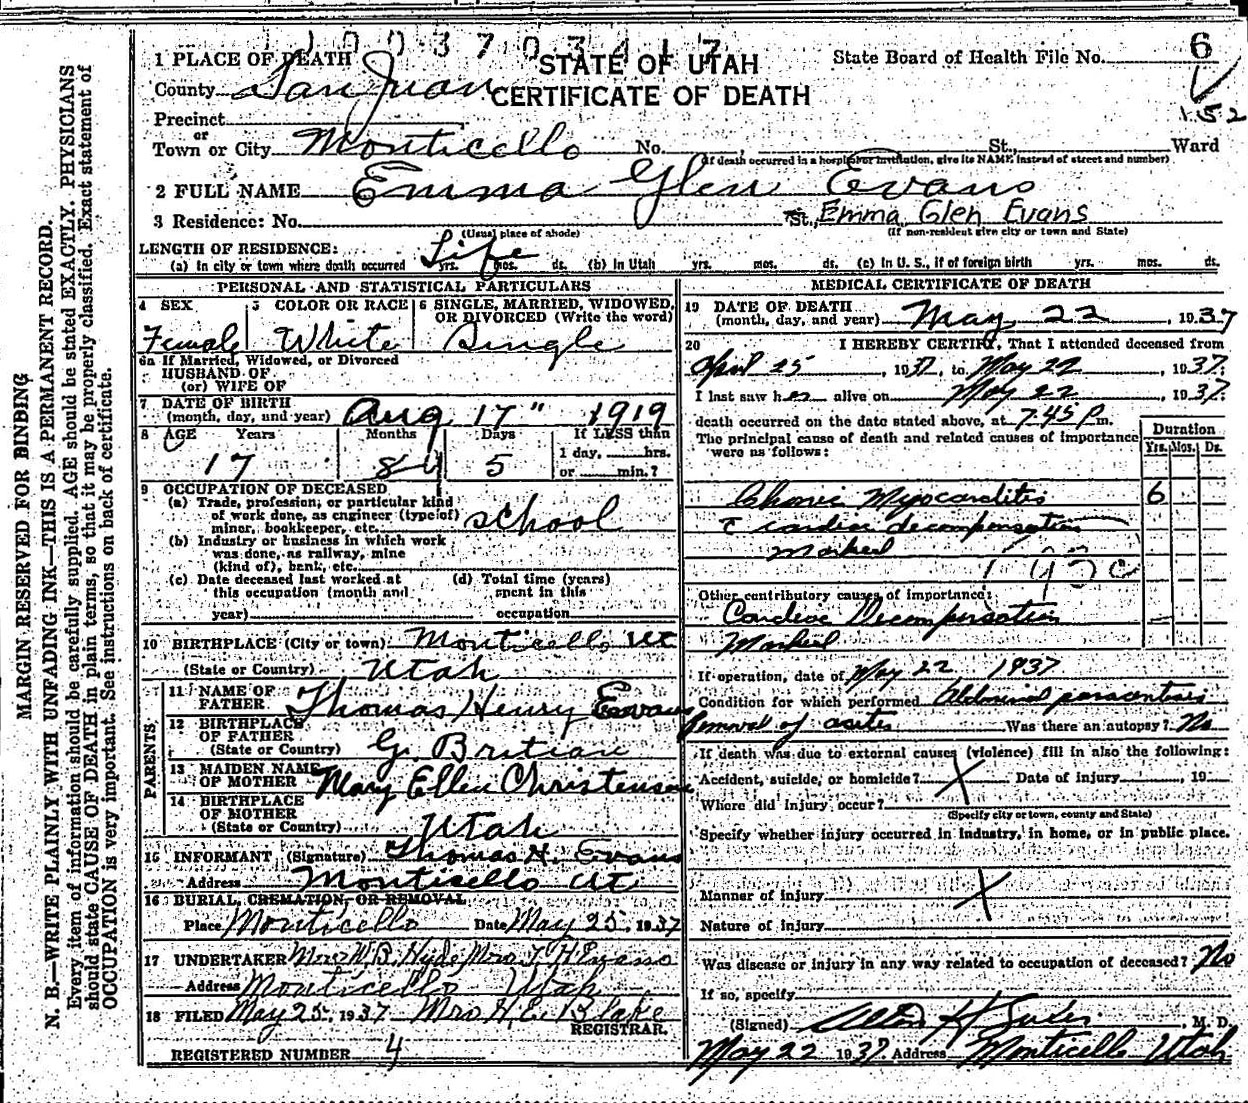 1003703417
1 PLACE OF DEATH
STATE OF UTAH
CERTIFICATE OF DEATH
State Board of Health File No. 6
152
County San Juan
Precinct
or
Town or City Monticello No. , St., Ward
(If death occurred in a hospital or institution, give its NAME instead of street and number)
2 FULL NAME Emma Glen Evans
3 Residence: No. St., Emma Glen Evans
(Usual place of abode) (If non-resident give city or town and State)
LENGTH OF RESIDENCE: Life
(a) In city or town where death occurred yrs. mos. ds. (b) In Utah yrs. mos. ds. (c) In U. S., if of foreign birth yrs. mos. ds.
PERSONAL AND STATISTICAL PARTICULARS
4 SEX Female
5 COLOR OR RACE White
6 SINGLE, MARRIED, WIDOWED, OR DIVORCED (Write the word) Single
6a If Married, Widowed, or Divorced
HUSBAND OF
(or) WIFE OF
7 DATE OF BIRTH
(month, day, and year) Aug 17" 1919
8 AGE Years Months Days If LESS than
17 5 1 day, hrs.
or min.?
9 OCCUPATION OF DECEASED
(a) Trade, profession, or particular kind
of work done, as engineer (type of)
miner, bookkeeper, etc. school
(b) Industry or business in which work
was done, as railway, mine
(kind of), bank, etc.
(c) Date deceased last worked at
this occupation (month and
year)
(d) Total time (years)
spent in this
occupation
10 BIRTHPLACE (City or town) Monticello Ut
(State or Country) Utah
PARENTS
11 NAME OF
FATHER Thomas Henry Evans
12 BIRTHPLACE
OF FATHER
(State or Country) G. Britian
13 MAIDEN NAME
OF MOTHER Mary Ellen Christensen
14 BIRTHPLACE
OF MOTHER
(State or Country) Utah
15 INFORMANT (Signature) Thomas H. Evans
Address Monticello Ut
16 BURIAL, CREMATION, OR REMOVAL
Place Monticello Date May 25, 1937
17 UNDERTAKER Mrs W.B. Hyde, Mrs T H Evans
Address Monticello Utah
18 FILED May 25, 1937 Mrs H.E. Blake
REGISTRAR.
REGISTERED NUMBER 4
MEDICAL CERTIFICATE OF DEATH
19 DATE OF DEATH
(month, day, and year) May 22, 1937
20 I HEREBY CERTIFY, That I attended deceased from
April 25, 1937, to May 22, 1937.
I last saw her alive on May 22, 1937.
death occurred on the date stated above, at 7:45 P m.
The principal cause of death and related causes of importance
were as follows:
Duration
Yrs. Mos. Ds.
Chonic Myocarditis 6
cardiac decompensation
marked
Other contributory causes of importance:
Cardiac Decompensation
Marked
If operation, date of May 22 1937
Condition for which performed Abdominal paracentesis
removal of Was there an autopsy? No
If death was due to external causes (violence) fill in also the following:
Accident, suicide, or homicide? X Date of injury , 19
Where did injury occur?
(Specify city or town, county and State)
Specify whether injury occurred in industry, in home, or in public place.
Manner of injury X
Nature of injury
Was disease or injury in any way related to occupation of deceased? No
If so, specify
(Signed) , M. D.
May 22 1937. Address Monticello Utah
MARGIN RESERVED FOR BINDING
N. B.—WRITE PLAINLY WITH UNFADING INK—THIS IS A PERMANENT RECORD.
Every item of information should be carefully supplied. AGE should be stated EXACTLY. PHYSICIANS
should state CAUSE OF DEATH in plain terms, so that it may be properly classified. Exact statement of
OCCUPATION is very important. See instructions on back of certificate.